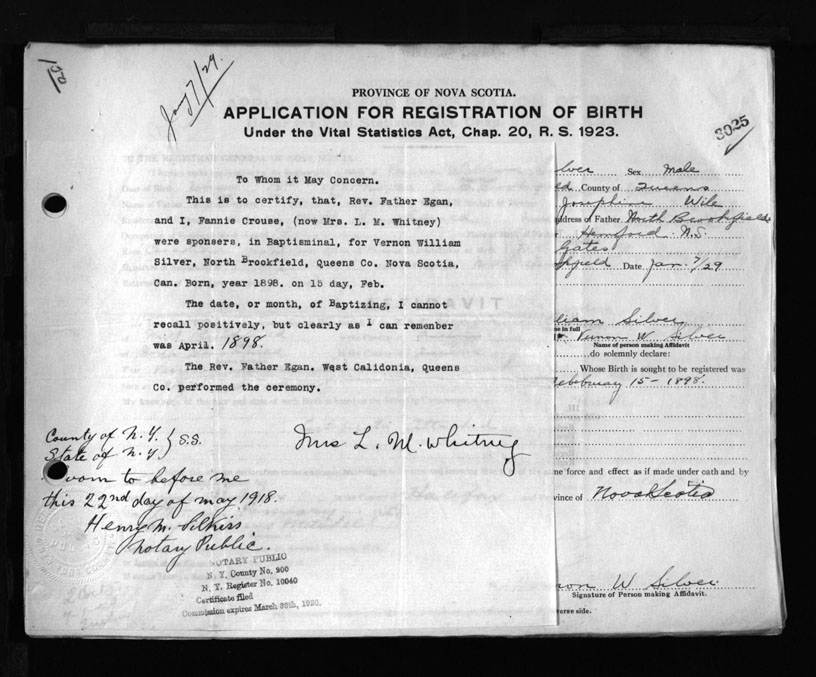 150
Jan 7/29.
PROVINCE OF NOVA SCOTIA.
APPLICATION FOR REGISTRATION OF BIRTH
Under the Vital Statistics Act, Chap. 20, R. S. 1923.
3025
To Whom it May Concern.
This is to certify, that, Rev. Father Egan,
and I, Fannie Crouse, (now Mrs. L. M. Whitney)
were sponsers, in Baptisminal, for Vernon William
Silver, North Brookfield, Queens Co. Nova Scotia,
Can. Born, year 1898. on 15 day, Feb.
The date, or month, of Baptizing, I cannot
recall positively, but clearly as I can remenber
was April. 1898.
The Rev. Father Egan. Wqst Calidonia, Queens
Co. performed the ceremony.
Mrs L. M. Whitney
County of N.Y. } S.S.
State of N.Y. }
worn to before me
this 22nd day of may 1918.
Henry M.
Notary Public.
NOTARY PUBLIC
N. Y. County No. 900
N. Y. Register No. 10040
Certificate filed
Commission expires March 30th, 1920.
lver Sex Male
County of Queens
Josephine Wile
ddress of Father North Brookfield
N.S.
Gates
field Date Jan. 7/29
lliam Silver
me in full Vernon W Silver
Name of person making Affidavit
do solemnly declare:
Whose Birth is sought to be registered was
Febbruary 15 - 1898.
me force and effect as if made under oath and by
vince of Nova Scotia
non W Silver
Signature of Person making Affidavit.
verse side.